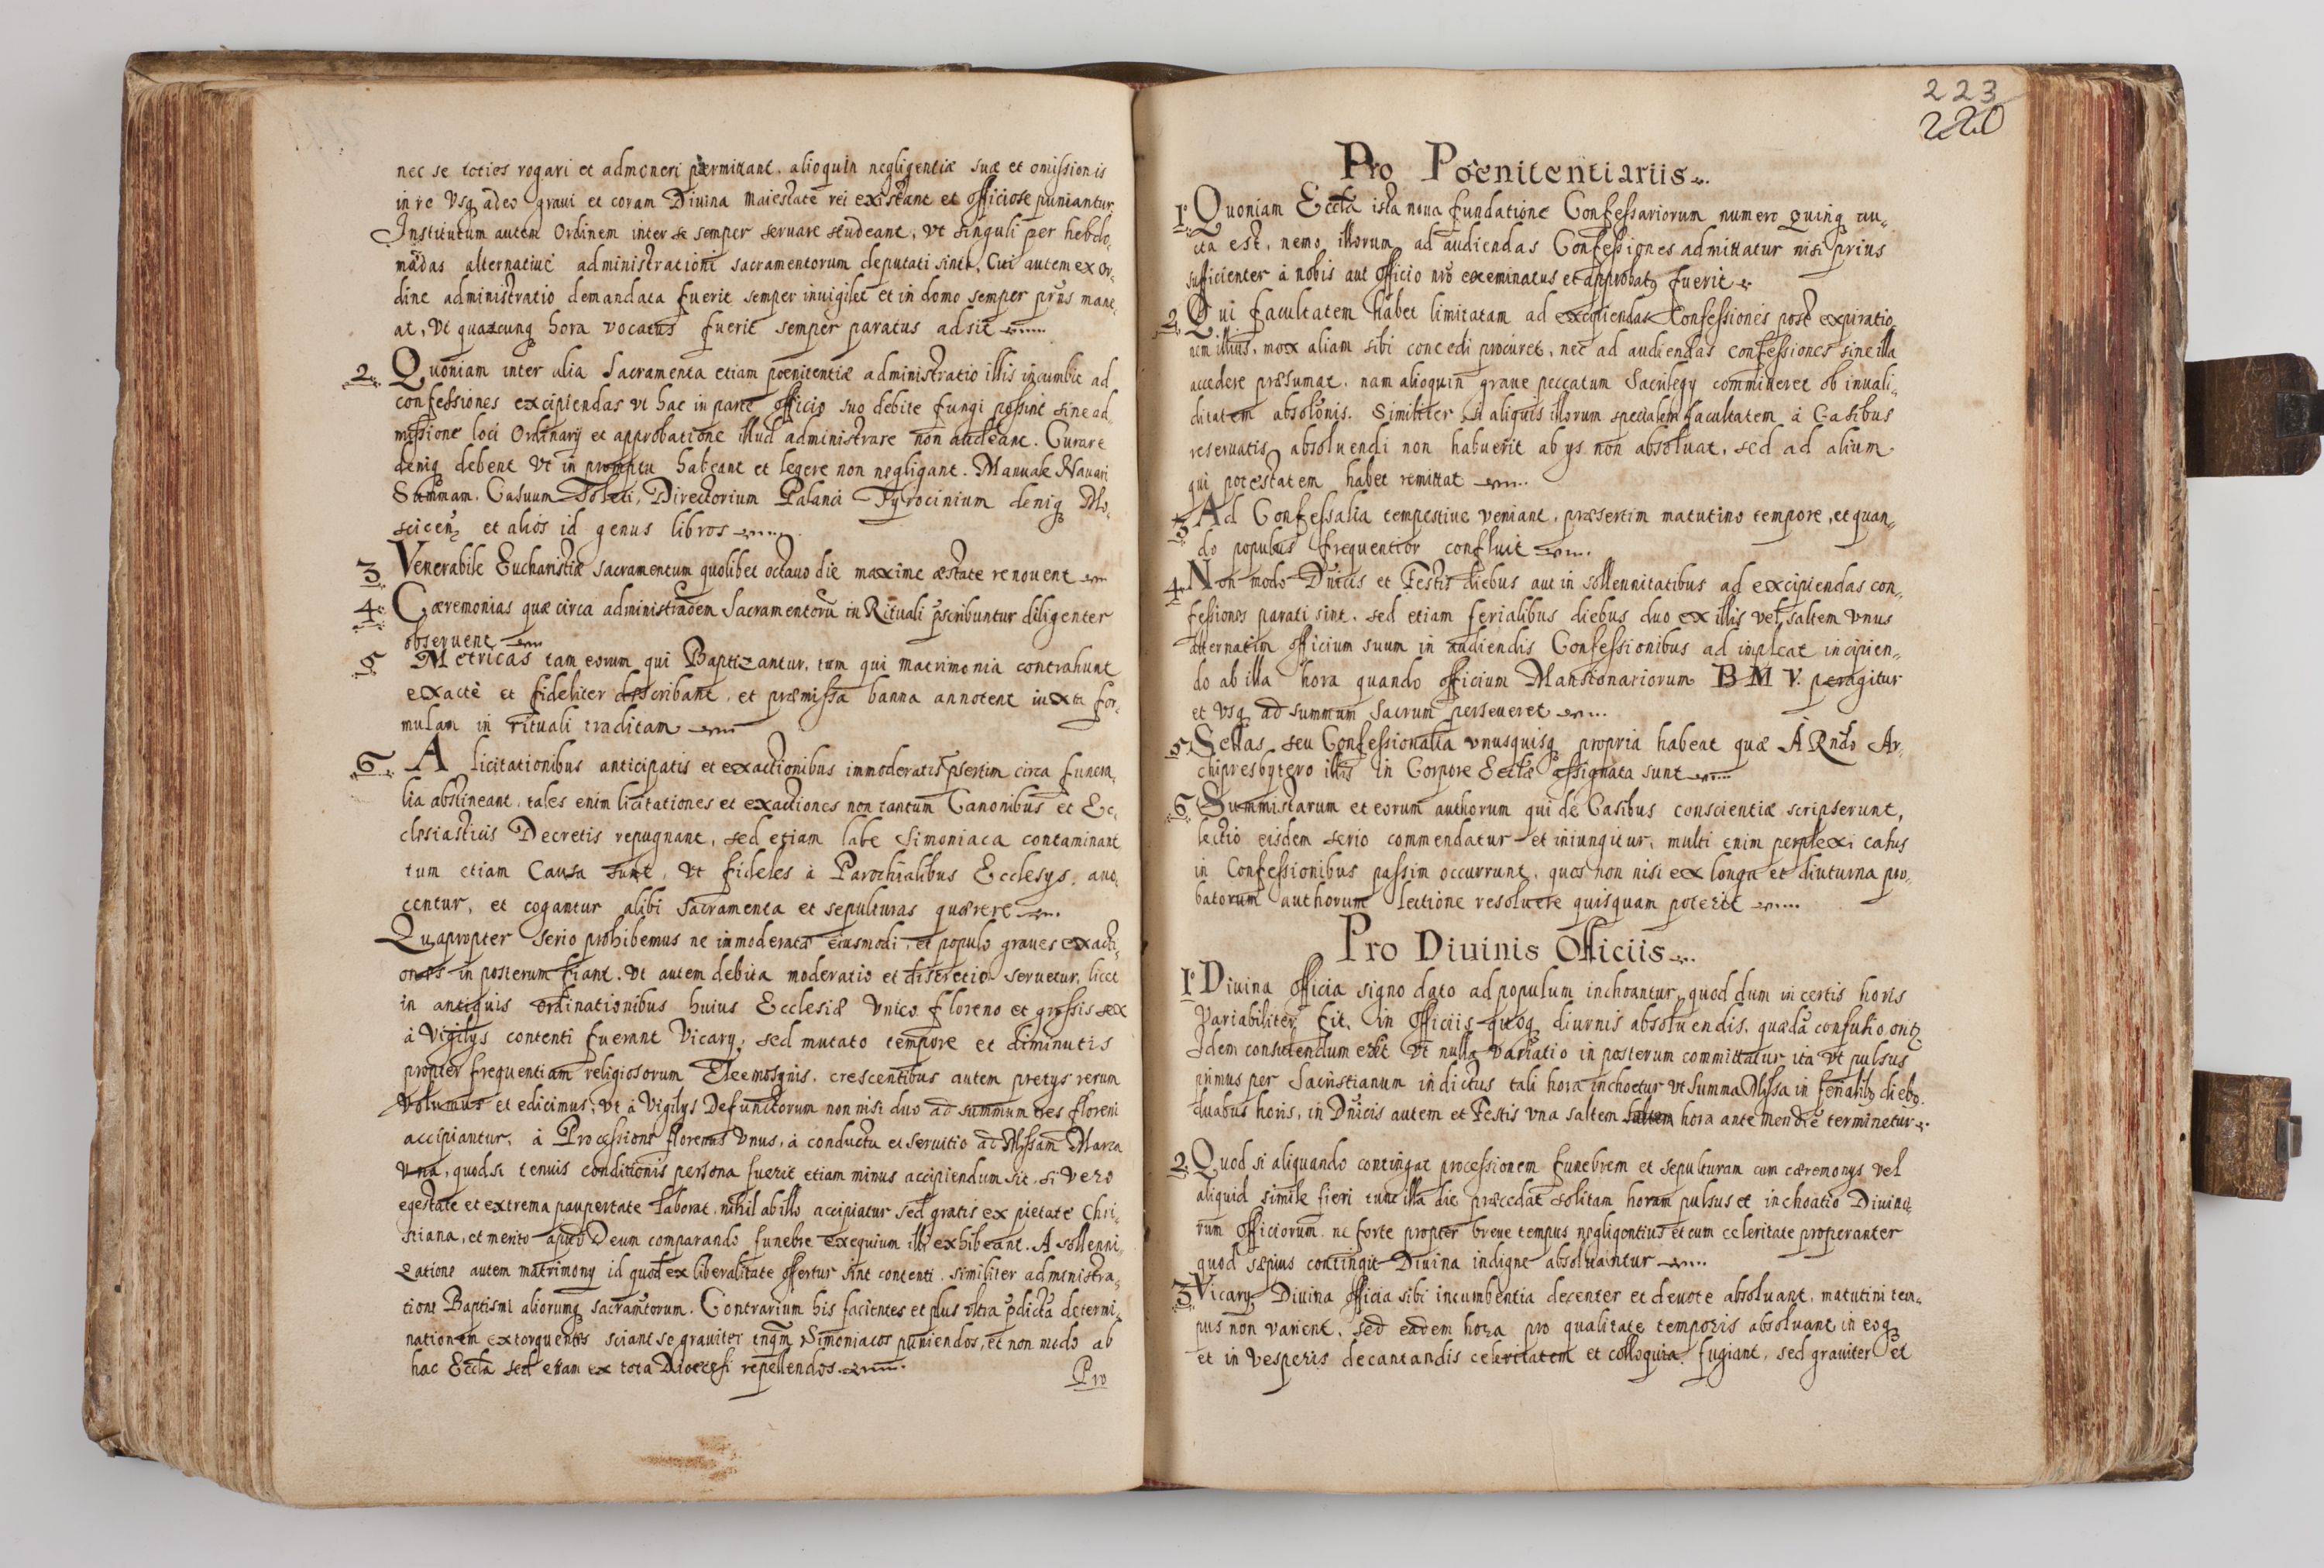 nec se toties rogari et admoneri permittant. alioquin negligentiæ suæ et omissionis
in re Vsq adeo graui et coram Diuina Maiestate rei existant et officiose puniantur
Institutum autem Ordinem inter se semper seruare studeant, vt singuli per hebdo,
madas alternatiue administrationi sacramentorum deputati sint. Cui autem ex or,
dine administratio demandata fuerit semper inuigilet et in domo semper prius mane,
at, Vt quacunq hora vocatus fuerit semper paratus adsit
2. Quoniam inter alia Sacramenta etiam poenitentiæ administratio illis incumbit ad
confessiones excipiendas vt hac in parte officio suo debite fungi possint sine ad,
missione loci Ordinarij et approbatione illud administrare non audeant. Curare
deniq debent Vt in promptu habeant et legere non negligant. Manuale Nauari
Summam. Casuum Toleti, Directorium Palanci Tyrocinium deniq Mo,
et alios id genus libros
3 Venerabile Eucharistiæ Sacramentum quolibet octauo die maxime æstate renouent
4. Cæremonias quæ circa administraoem Sacramentorũ in Rituali pscribuntur diligenter
obseruent
5 Metricas tam eorum qui Baptizantur, tum qui matrimonia contrahunt
exactè et fideliter describant, et præmissa banna annotent iuxta for,
mulam in rituali traditam
6. A licitationibus anticipatis et exactionibus immoderatis psertim circa funera,
lia abstineant, tales enim licitationes et exactiones non tantum Canonibus et Ec,
clesiasticis Decretis repugnant, sed etiam labe Simoniaca contaminant
tum etiam Causa sunt, Vt fideles à Parochialibus Ecclesÿs, auo,
centur, et cogantur alibi Sacramenta et sepulturas quærere
Quapropter serio prohibemus ne inmoderatæ eiusmodi, et populo graues exacti,
ones in posterum fiant. Vt autem debita moderatio et discretio seruetur, licet
in antiquis ordinationibus huius Ecclesiæ Vnico floreno et grossis sex
à Vigilÿs contenti fuerint Vicarÿ, sed mutato tempore et diminutis
propter frequentiam religiosorum Eleemosynis. crescentibus autem pretÿs rerum
Volumus et edicimus, Vt à Vigilÿs Defunctorum non nisi duo ad summum tres floreni
accipiantur, à Processione florenus Vnus, à conductu et seruitio ad Missam Marca
Vna, quod si tenuis conditionis persona fuerit etiam minus accipiendum sit. si vero
egestate et extrema paupertate laborat, nihil ab illo accipiatur sed gratis ex pietate Chri,
stiana, et merito apud Deum comparando funebre exequium illi exhibeant. A sollenni,
zatione autem matrimonÿ id quod ex liberalitate offertur sint contenti. similiter administra,
tione Baptismi aliorumq sacramtorum. Contrarium his facientes et plus vltra pdictã determi,
nationem extorquentes sciant se grauiter tnqm Simoniacos puniendos, et non modo ab
hac Eccla sed etiam ex tota Dioecesi repellendos.
Pro
223
220
Pro Poenitentiariis
1. Quoniam Eccla ista noua fundatione Confessariorum numero Quinq au,
cta est, nemo illorum ad audiendas Confessiones admittatur nisi prius
sufficienter à nobis aut officio nro exeminatus et approbatq fuerit
2 Qui facultatem habet limitatam ad exequiendas Confessiones post expiratio,
nem illius, mox aliam sibi concedi procuret, nec ad audiendas confessiones sine illa
accedere præsumat. nam alioquin graue peccatum Sacrilegÿ commineret ob inuali,
ditatem absolonis. Similiter si aliquis illorum specialem facultatem à Casibus
reseruatis absoluendi non habuerit ab ÿs non absoluat, sed ad alium
qui potestatem habet remittat
3 Ad Confessalia tempestiue veniant, præsertim matutino tempore, et quan,
do populus frequentior confluit
4. Non modo Dnicis et Festis diebus aut in sollennitatibus ad excipiendas con,
fessiones parati sint, sed etiam ferialibus diebus duo ex illis vel saltem vnus
alternatim officium suum in audiendis Confessionibus ad impleat incipien,
do ab illa hora quando officium Mansionariorum B M V. peragitur
et Vsq ad summum Sacrum perseueret
5. Sellas seu Confessionalia vnusquisq propria habeat quæ À Rndo Ar,
chipresbytero illis in Corpore Ecclæ assignata sunt
6 Summistarum et eorum authorum qui de Casibus conscientiæ scripserunt,
lectio eisdem serio commendatur et iniungitur, multi enim perplexi casus
in Confessionibus passim occurrunt, quos non nisi ex longa et diuturna pro,
batorum authorum lectione resoluere quisquam poterit
Pro Diuinis Officiis
1. Diuina officia signo dato ad populum inchoantur, quod dum in certis horis
Variabiliter fit, in Officiis quoq diurnis absoluendis, quædã confusio orit
Idem consulendum erit Vt nulla variatio in posterum committatur ita Vt pulsus
primus per Sacristianum indictus tali hora inchoetur Vt Summa Missa in ferialibq diebq
duabus horis, in Dnicis autem et Festis vna saltem saltem hora ante meridiẽ terminetur
2. Quod si aliquando contingat processionem funebrem et sepulturam cum cæremonÿs vel
aliquid simile fieri tunc illa die præcedat solitam horam pulsus et inchoatio Diuino,
rum officiorum. ne forte propter breue tempus negligentius et cum celeritate properanter
quod sæpius contingit Diuina indigne absoluantur
3 Vicarÿ Diuina officia sibi incumbentia decenter et deuote absoluant, matutini tem,
pus non varient, sed eadem hora pro qualitate temporis absoluant in eoq
et in vesperis decantandis celeritatem et colloquia fugiant, sed grauiter et